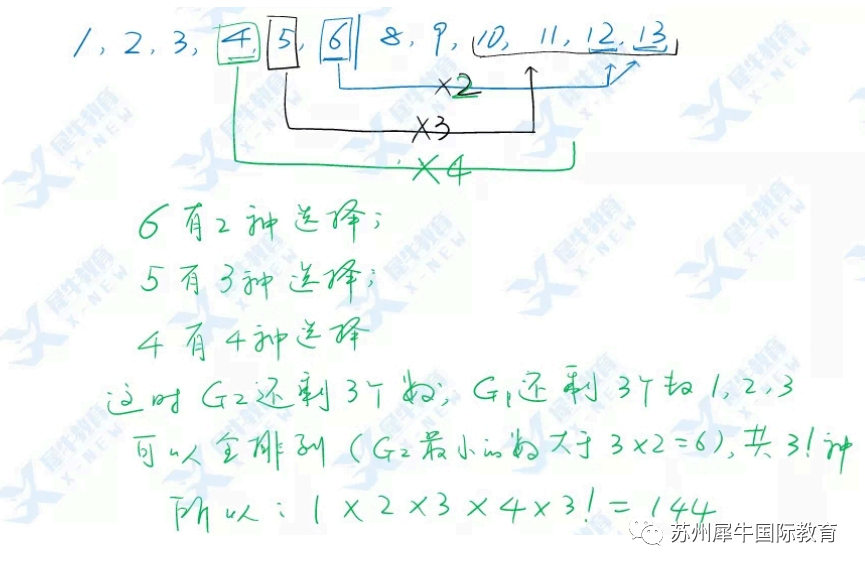 1, 2, 3, 4, 5, 6 | 8, 9, 10, 11, 12, 13
×2
×3
×4
6有2种选择;
5有3种选择;
4有4种选择
这时G2还剩3个数, G1还剩3个数1,2,3
可以全排列(G2最小的数大于3×2=6),共3!种
所以: 1×2×3×4×3!=144
苏州犀牛国际教育
犀牛教育
X-NEW